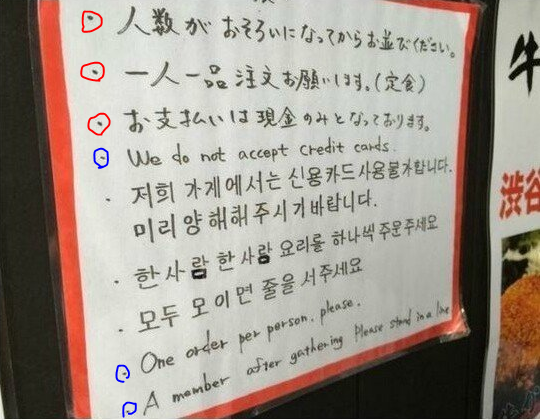 ・人数がおそろいになってからお並びください。
・一人一品注文お願いします。(定食)
・お支払いは現金のみとなっております。
・We do not accept credit cards.
・저희 가게에서는 신용카드사용불가합니다.
미리양해해주시기바랍니다.
・한사람 한사람 요리를 하나씩 주문주세요
・모두 모이면 줄을 서주세요
・One order per person. please.
・A member after gathering Please stand in a line
牛
渋谷